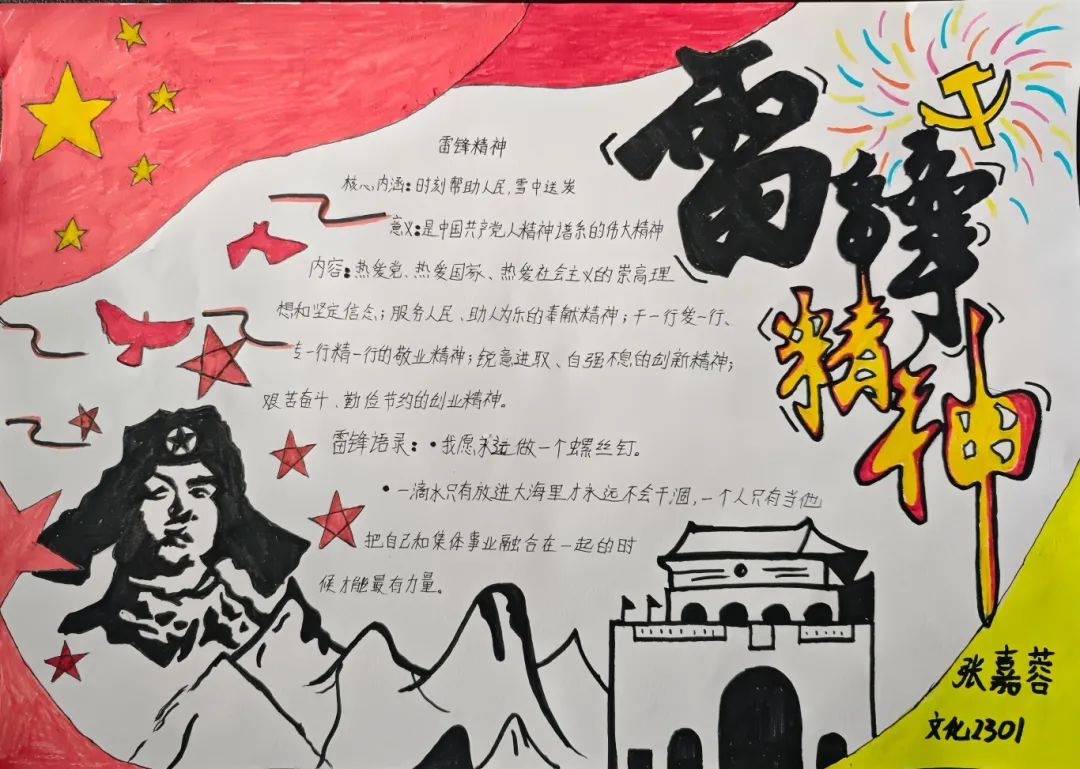 雷锋精神
雷锋精神
核心内涵：时刻帮助人民，雪中送炭
意义：是中国共产党人精神谱系的伟大精神
内容：热爱党、热爱国家、热爱社会主义的崇高理
想和坚定信念；服务人民、助人为乐的奉献精神；干一行爱一行、
专一行精一行的敬业精神；锐意进取、自强不息的创新精神；
艰苦奋斗、勤俭节约的创业精神。
雷锋语录：•我愿永远做一个螺丝钉。
•一滴水只有放进大海里才永远不会干涸，一个人只有当他
把自己和集体事业融合在一起的时
候才能最有力量。
张嘉蓉
文化2301